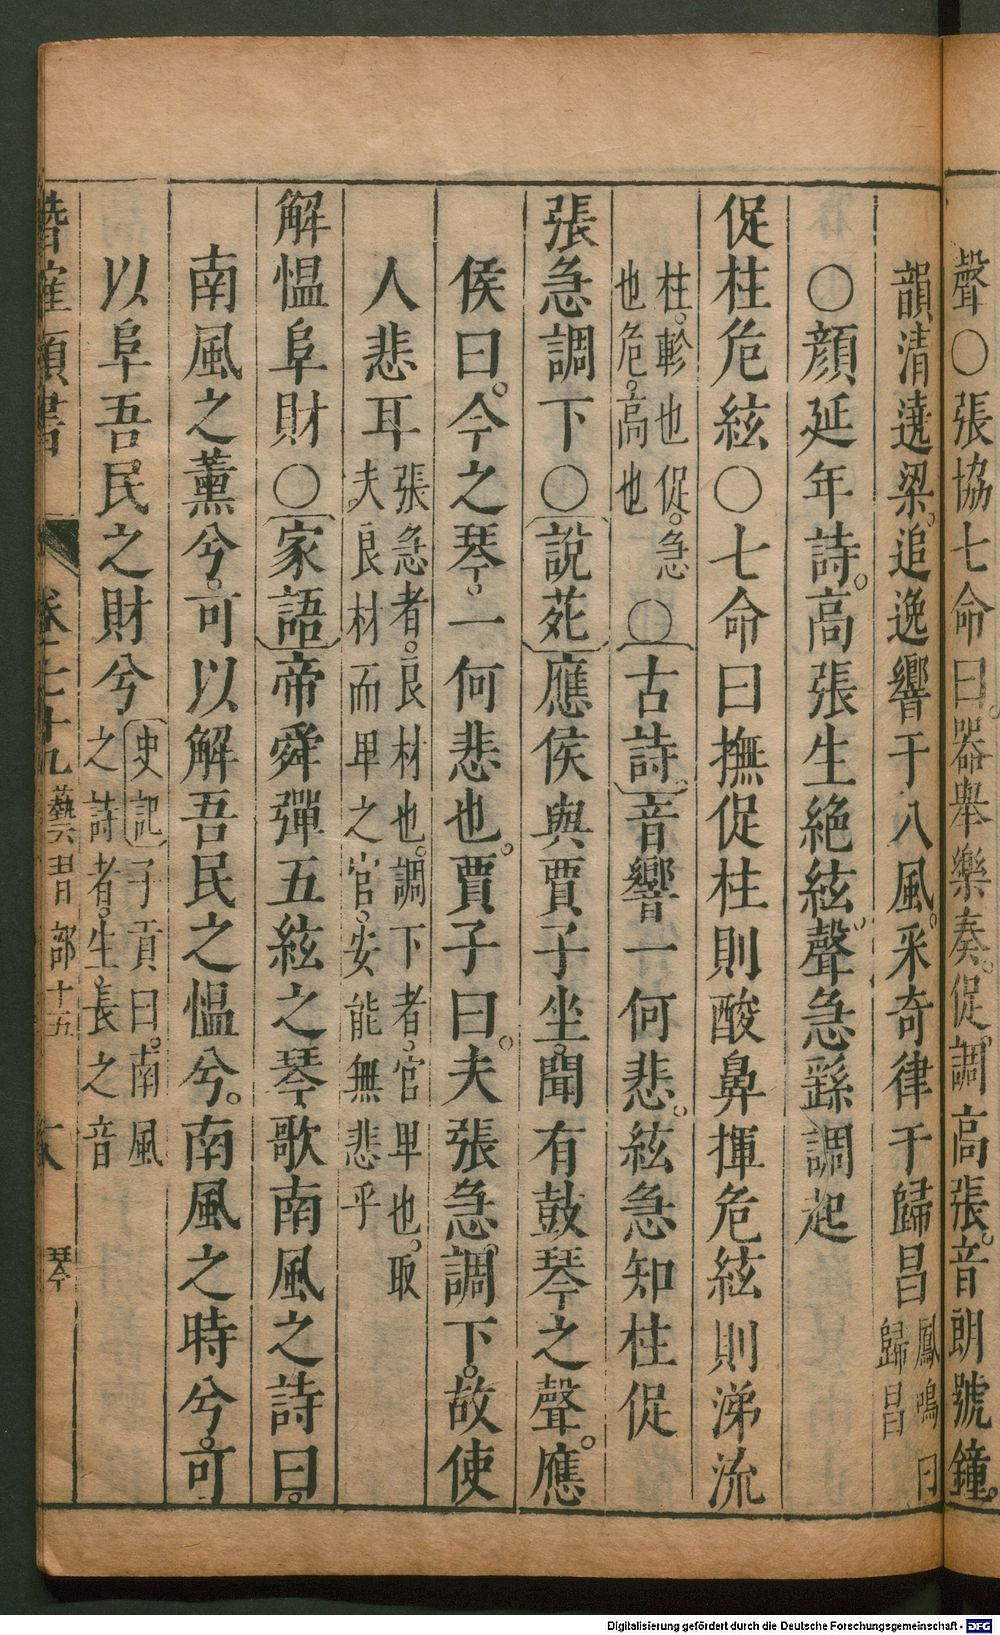 聲○張協七命曰。器舉樂奏。促調高張。音朗號鐘。
韻清遶梁。追逸響于八風。采奇律于歸昌鳳鳴曰歸昌
○顏延年詩。高張生絕絃。聲急繇調起
促柱危絃○七命曰撫促柱則酸鼻揮危絃則涕流
柱。軫也促。急也危。高也○古詩。音響一何悲。絃急知柱促
張急調下○說苑應侯與賈子坐。聞有鼓琴之聲。應
侯曰。今之琴。一何悲也。賈子曰。夫張急。調下。故使
人悲耳張急者。良材也。調下者。官卑也。取夫良材而卑之官。安能無悲乎
解慍阜財○家語帝舜彈五絃之琴歌南風之詩曰。
南風之薰兮。可以解吾民之慍兮。南風之時兮。可
以阜吾民之財兮史記子貢曰。南風之詩者。生長之音
卷七十九 藝習部十五 琴
Digitalisierung gefördert durch die Deutsche Forschungsgemeinschaft - DFG